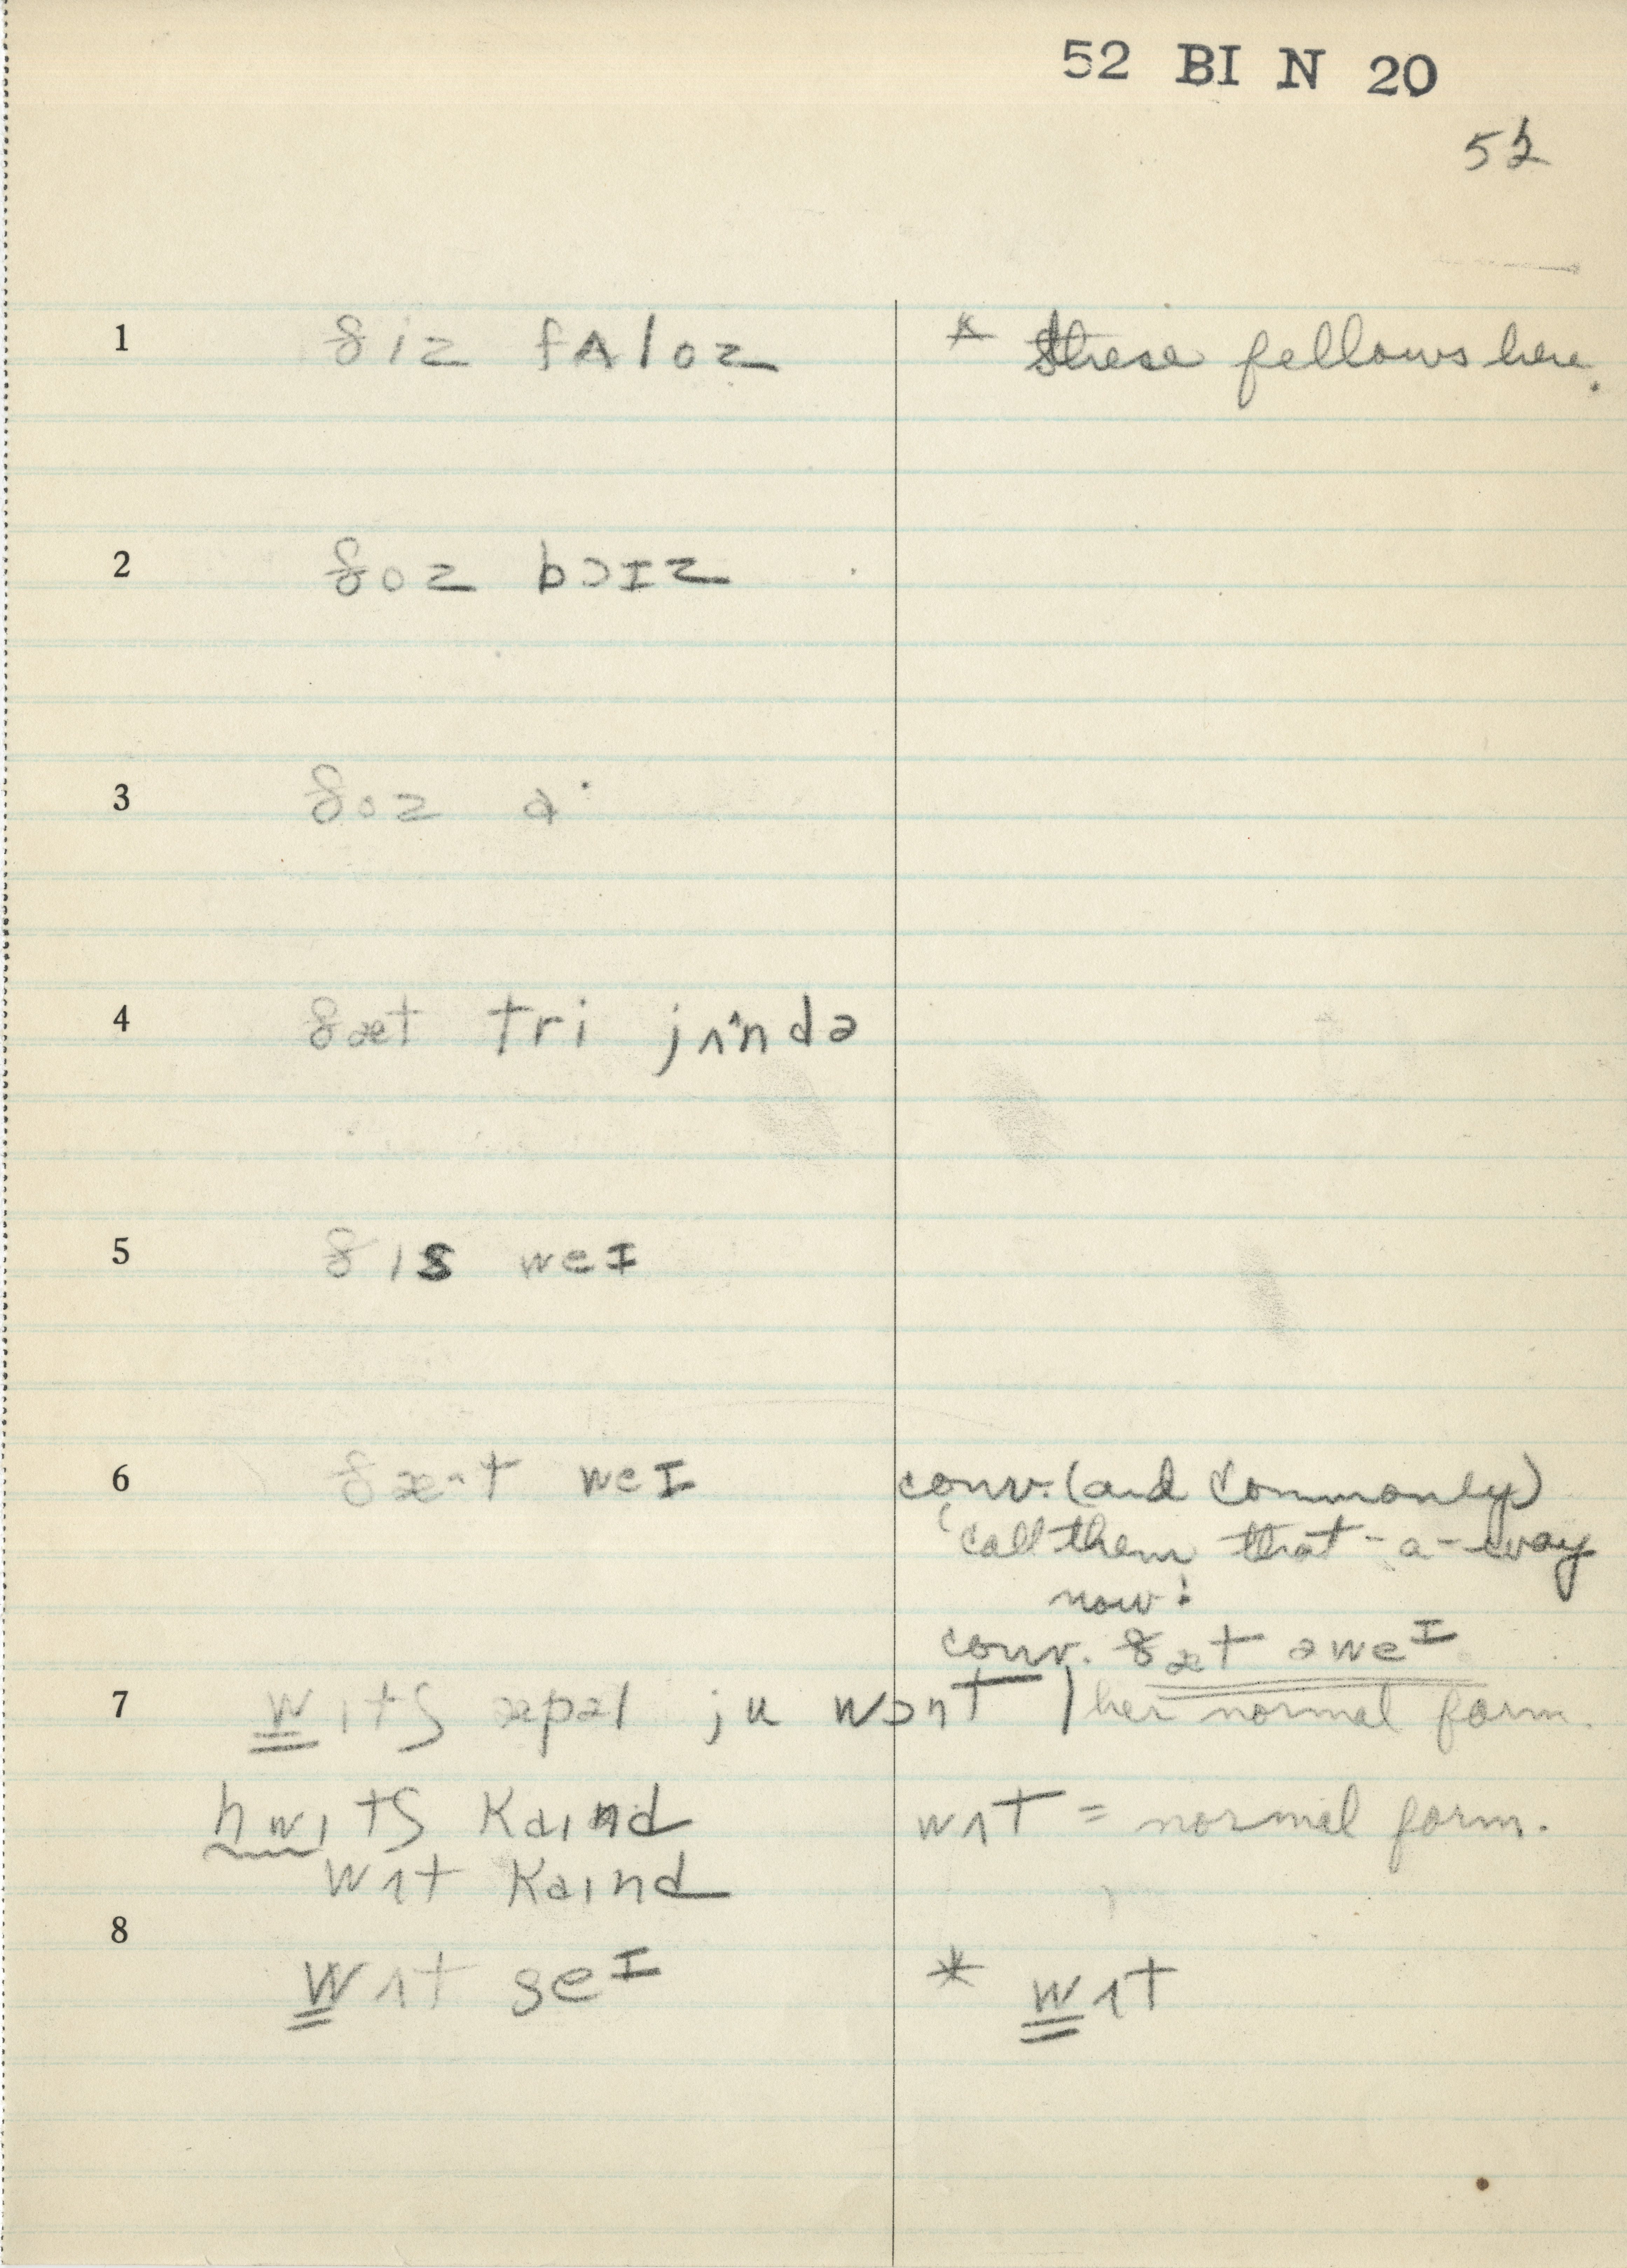 52 BI N 20
52
1 ðiz fʌloz * these fellows here.
2 ðoz bɔɪz
3 ðoz ə·
4 ðæt tri jʌ^ndə
5 ðɪs weɪ
6 ðæ·t weɪ conv. (and commonly)
'call them that-a-way
now!
conv. ðæt əweɪ
7 wɪtʃ æpəl ju wɔnt | her normal form.
hwɪtʃ kaɪnd wʌt = normal form.
wʌt kaɪnd
8
wʌt seɪ * wʌt